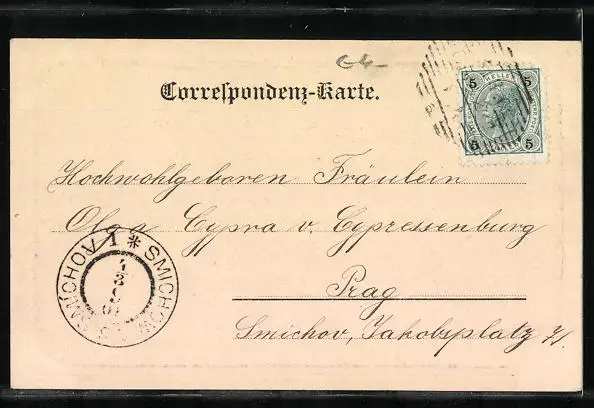 G4-
Correspondenz-Karte.
5 HELLER 5
5 5
Hochwohlgeboren Fräulein
Olga Cypra v. Cypressenburg
Prag
Smichov, Jakobsplatz
SMICHOV 1 * SMICHOV